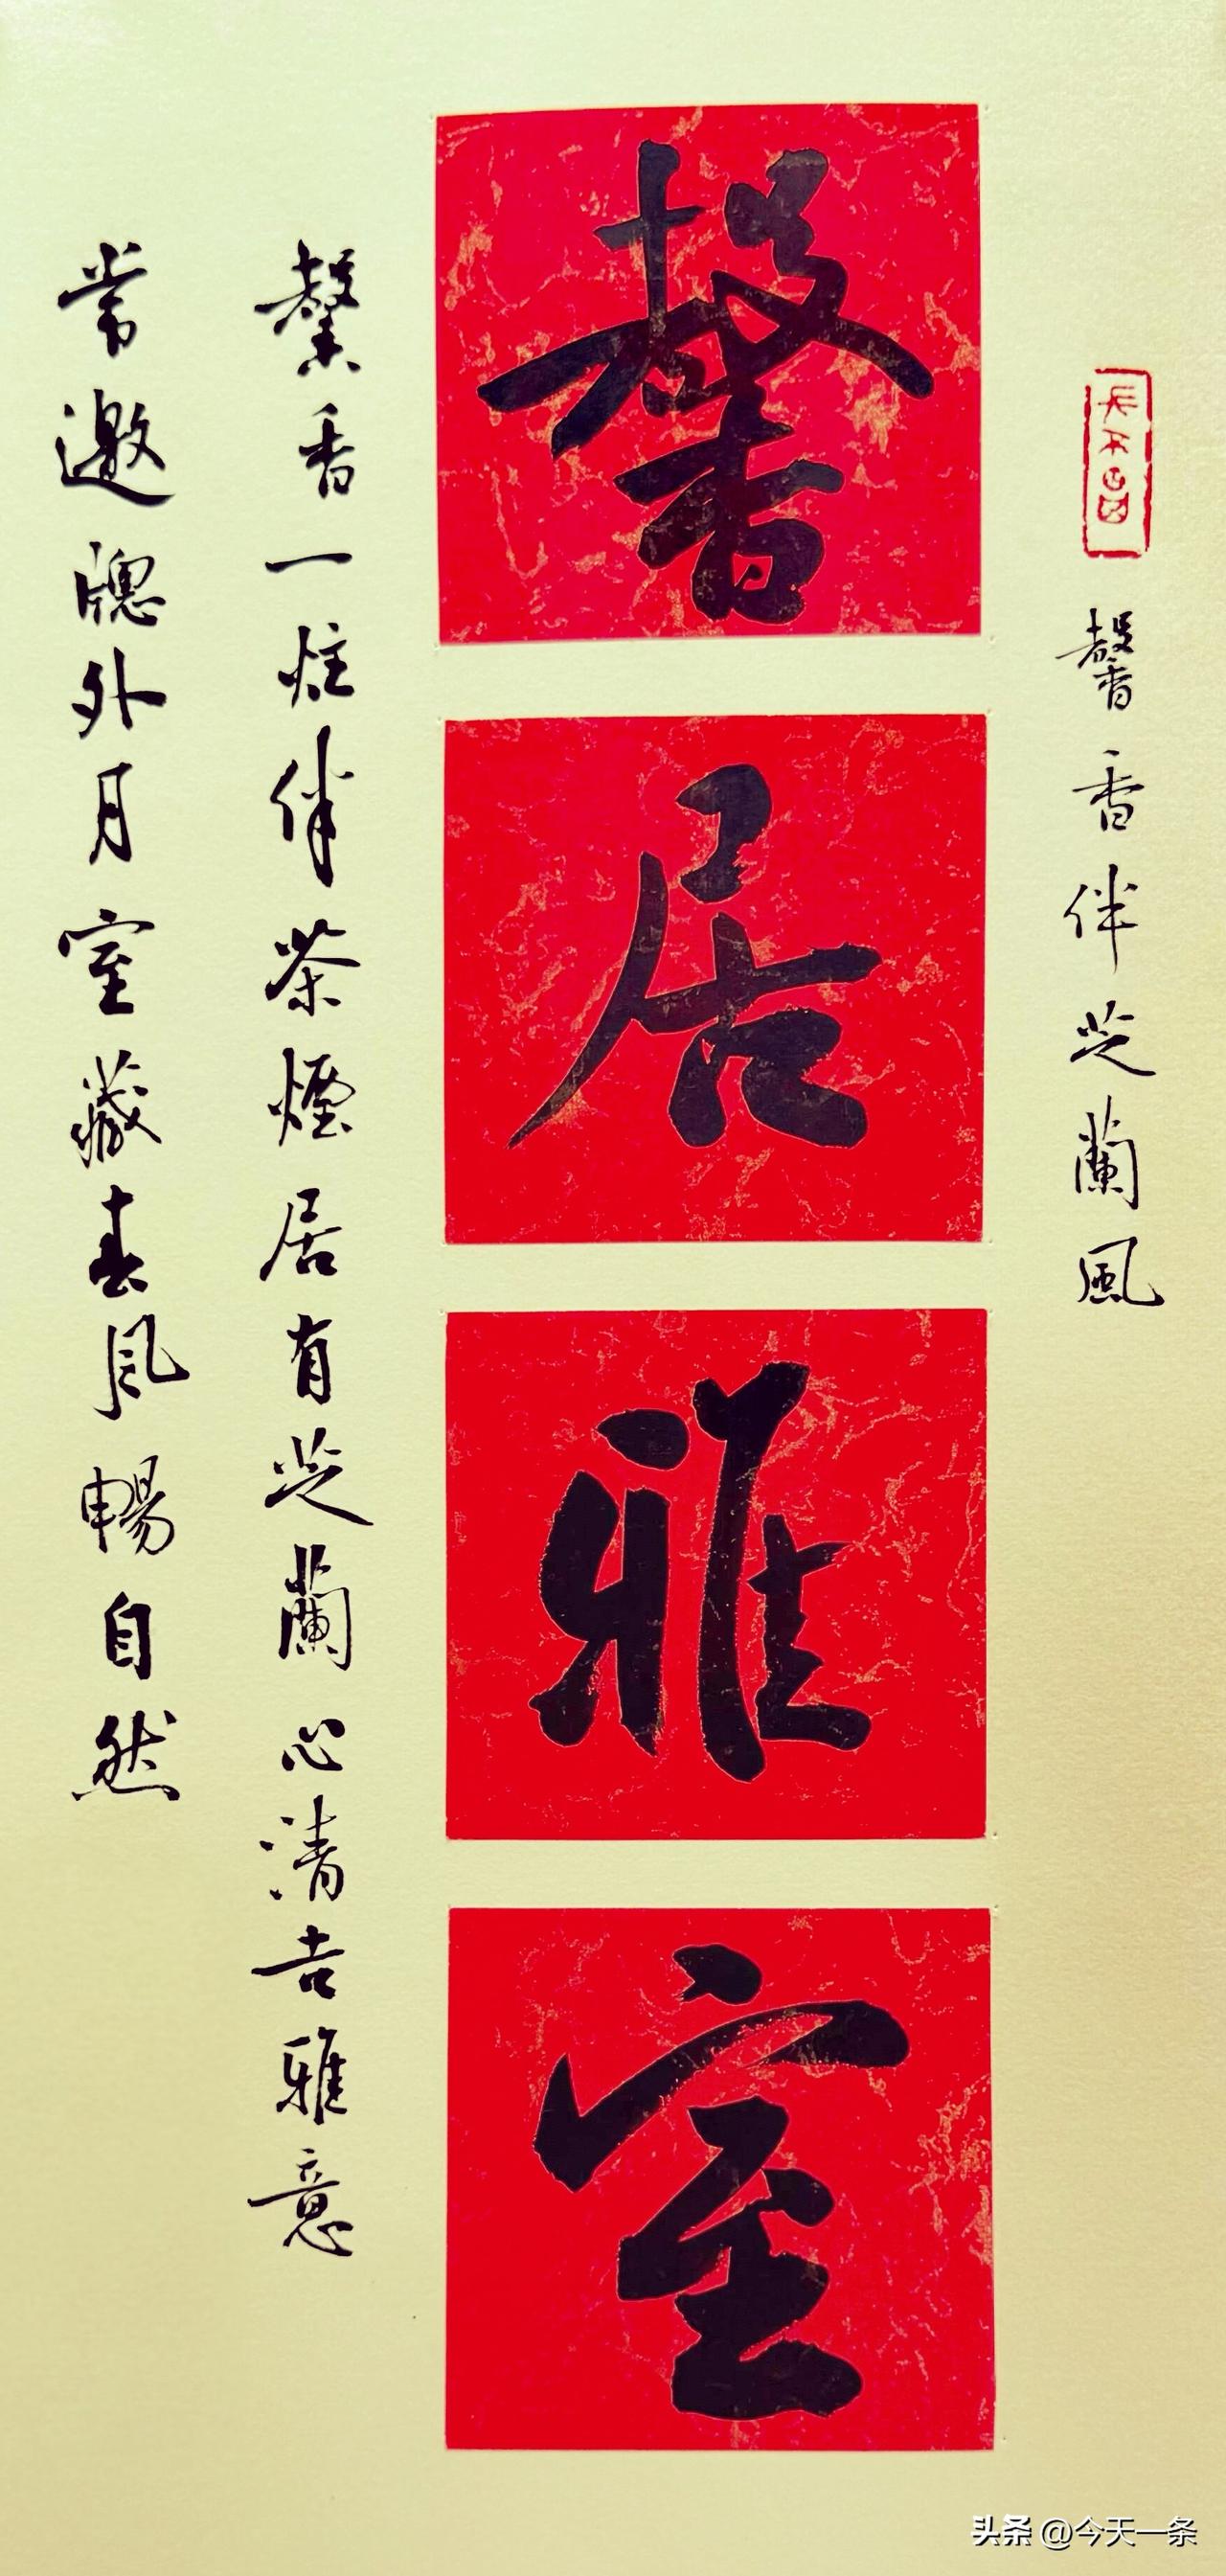 馨香伴芝蘭風
馨居雅室
馨香一炷伴茶煙居有芝蘭心清吉雅意
常邀牕外月室藏春風暢自然
头条 @今天一条